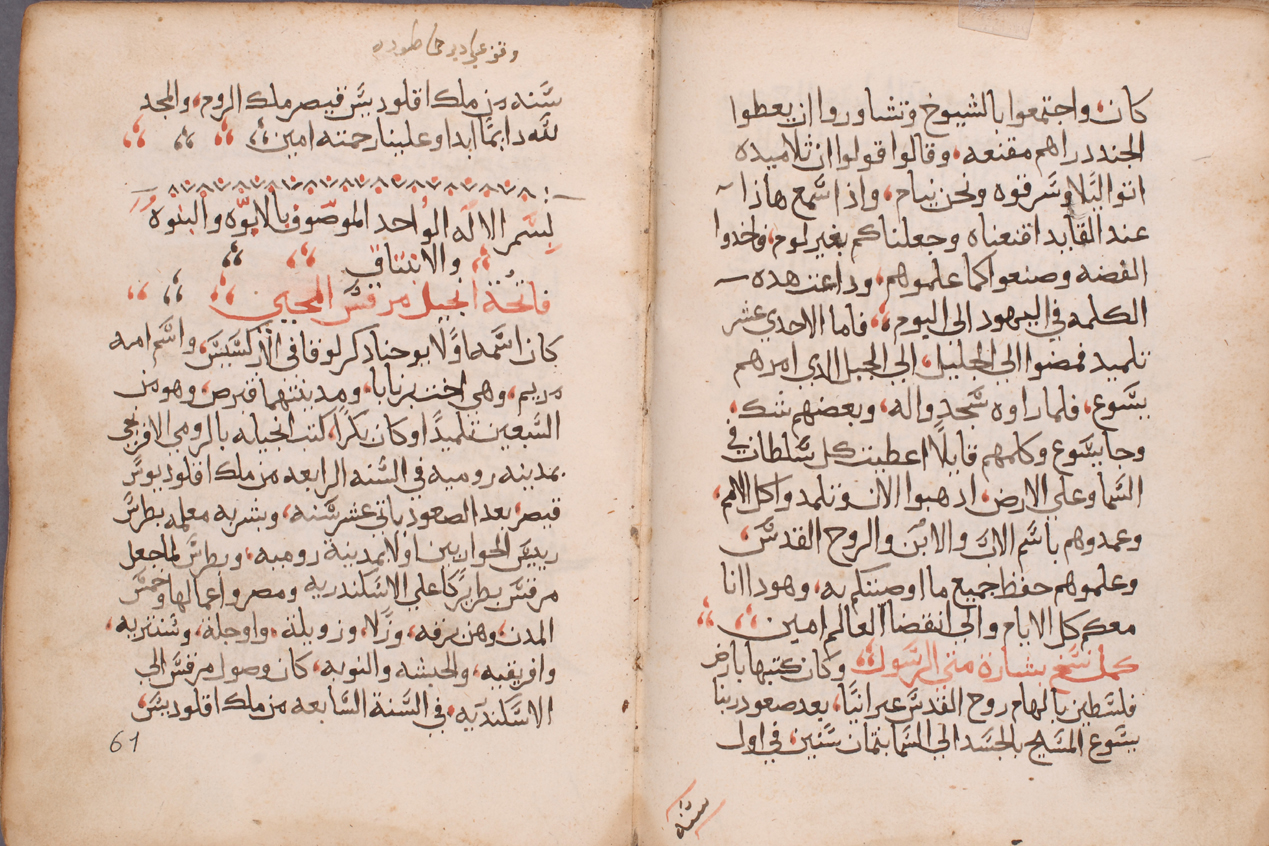 كان، واجتمعوا بالشيوخ وتشاوروا ان يعطوا
الجند دراهم مقنعه، وقالوا قولوا ان تلاميده
اتوا ليلا وسرقوه ونحن نيام، واذا سمع هاذا
عند القايد اقنعناه وجعلناكم بغير لوم، فاخدوا
الفضه وصنعوا كما علموهم، وداعت هده
الكلمه في اليهود الى اليوم، فاما الاحدي عشر
تلميد فمضوا الي الجليل، الي الجبل الدي امرهم
يسوع، فلما راوه سجدوا له، وبعضهم شك،
وجا يسوع وكلمهم قايلا اعطيت كل سلطان في
السما وعلي الارض، ادهبوا الان وتلمدوا كل الامم،
وعمدوهم باسم الاب والابن والروح القدس،
وعلموهم حفظ جميع ما اوصيتكم به، وهودا انا
معكم كل الايام والي انقضا العالم امين
كمل نسخ بشارة متي الرسول وكان كتبها بارض
فلسطين بالهام روح القدس عبرانيا، بعد صعود ربنا
يسوع المسيح بالجسد الي السما بتمان سنين، في اول
سنه
سنه من ملك اقلوديس قيصر ملك الروم، والمجد
لله دايما ابدا وعلينا رحمته امين
بسم الاله الواحد الموصوف بالابوه والبنوه
والانبتاق
فاتحة انجيل مرقس المحيي
كان اسمه اولا يوحنا دكر لوقا في الابركسيس، واسم امه
مريم، وهي اخت برنابا، ومدينتهما قبرص، وهو من
السبعين تلميدا وكان بكرا، كتب انجيله بالرومي الافرنجي
بمدينه روميه في السنه الرابعه من ملك اقلوديوس
قيصر بعد الصعود باتني عشر سنه، وبشر به معلمه بطرس
رييس الحواريين اولا بمدينة روميه، وبطرس لما جعل
مرقس بطريركا علي الاسكندريه ومصر واعمالها وخمس
المدن، وهن برقه، وزلا، وزويلة، واوجلة، وشنتريه،
وافريقيه، والحبشه والنوبه، كان وصول مرقس الي
الاسكندريه، في السنة السابعه من ملك اقلوديس
61